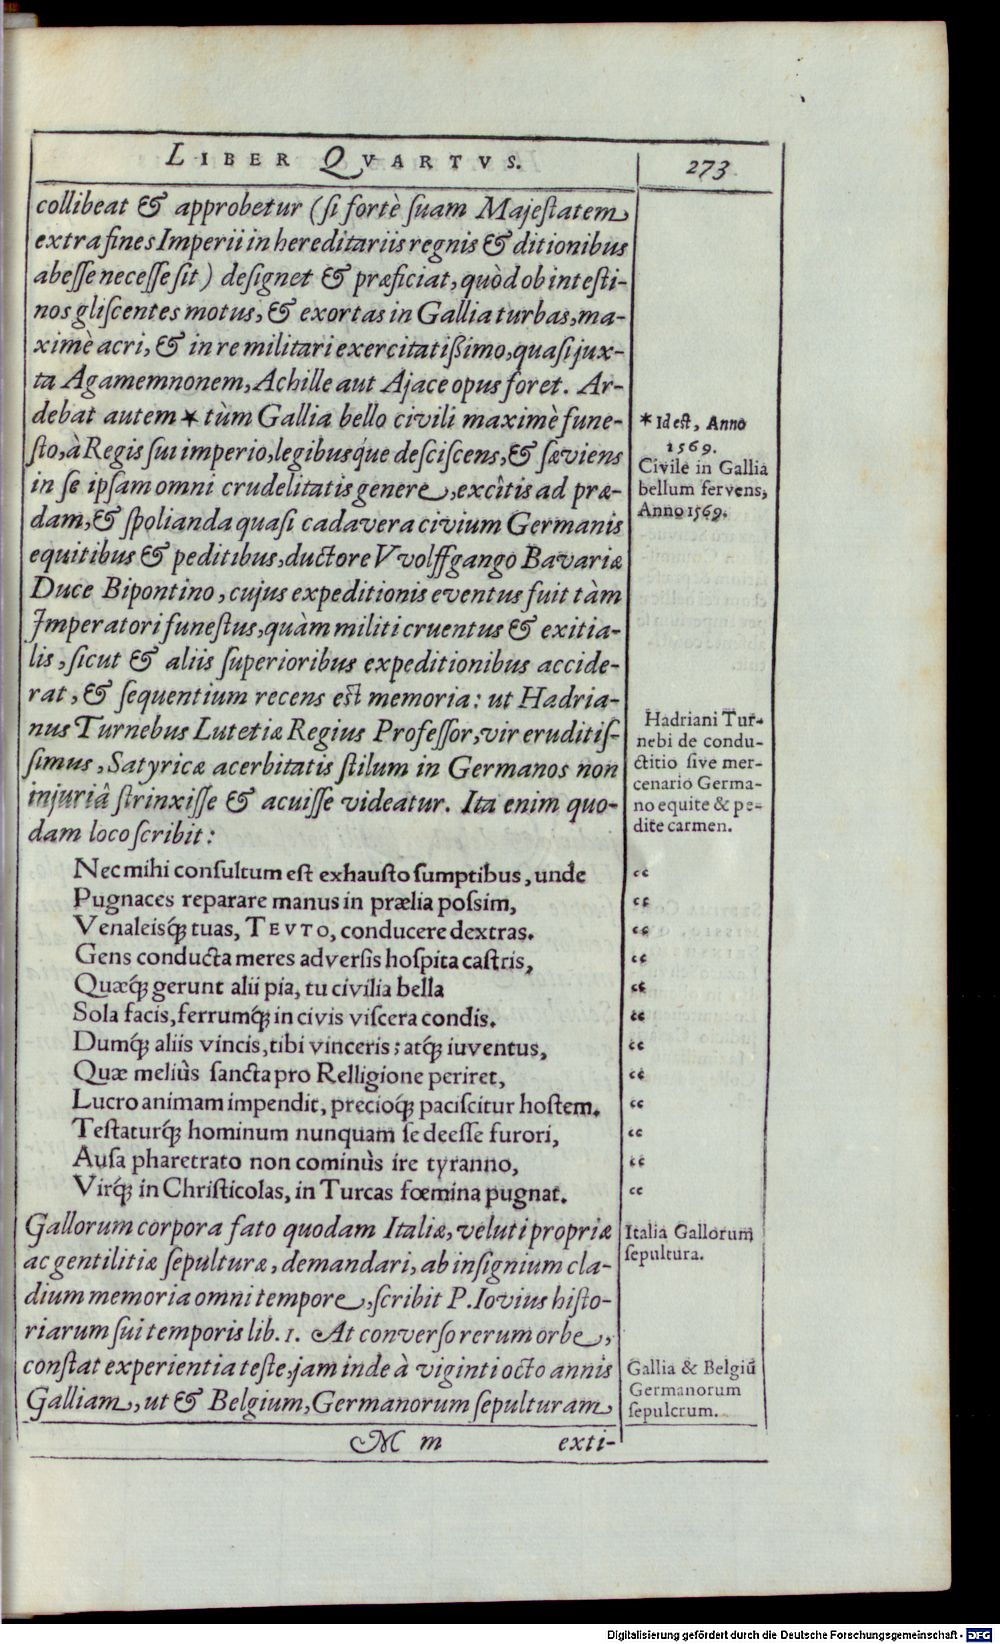 LIBER QVARTVS.
273
collibeat & approbetur (ſi fortè ſuam Majeſtatem
extra fines Imperii in hereditariis regnis & ditionibus
abeſſe neceſſe ſit) deſignet & præficiat, quòd ob inteſti-
nos gliſcentes motus, & exortas in Gallia turbas, ma-
ximè acri, & in re militari exercitatißimo, quaſi jux-
ta Agamemnonem, Achille aut Ajace opus foret. Ar-
debat autem * tùm Gallia bello civili maximè fune-
ſto, à Regis ſui imperio, legibusq́ue deſciſcens, & ſæviens
in ſe ipſam omni crudelitatis genere, excîtis ad præ-
dam, & ſpolianda quaſi cadavera civium Germanis
equitibus & peditibus, ductore VVolffgango Bavariæ
Duce Bipontino, cujus expeditionis eventus fuit tàm
Imperatori funeſtus, quàm militi cruentus & exitia-
lis, ſicut & aliis ſuperioribus expeditionibus accide-
rat, & ſequentium recens eſt memoria: ut Hadria-
nus Turnebus Lutetiæ Regius Profeſſor, vir eruditiſ-
ſimus, Satyricæ acerbitatis ſtilum in Germanos non
injuriâ ſtrinxiſſe & acuiſſe videatur. Ita enim quo-
dam loco ſcribit:
* Id eſt, Anno
1569.
Civile in Gallia
bellum fervens,
Anno 1569.
Hadriani Tur-
nebi de condu-
ctitio ſive mer-
cenario Germa-
no equite & pe-
dite carmen.
Nec mihi conſultum eſt exhauſto ſumptibus, unde “
Pugnaces reparare manus in prælia poſsim, “
Venaleisq́; tuas, TEVTO, conducere dextras. “
Gens conducta meres adverſis hoſpita caſtris, “
Quæq́; gerunt alii pia, tu civilia bella “
Sola facis, ferrumq́; in civis viſcera condis. “
Dumq́; aliis vincis, tibi vinceris; atq́; iuventus, “
Quæ meliùs ſancta pro Relligione periret, “
Lucro animam impendit, precioq́; paciſcitur hoſtem. “
Teſtaturq́; hominum nunquam ſe deeſſe furori, “
Auſa pharetrato non cominùs ire tyranno, “
Virq́; in Chriſticolas, in Turcas fœmina pugnat. “
Gallorum corpora fato quodam Italiæ, veluti propriæ
ac gentilitiæ ſepulturæ, demandari, ab inſignium cla-
dium memoria omni tempore, ſcribit P. Iovius hiſto-
riarum ſui temporis lib. 1. At converſo rerum orbe,
conſtat experientia teſte, jam inde à viginti octo annis
Galliam, ut & Belgium, Germanorum ſepulturam
Italia Gallorum
ſepultura.
Gallia & Belgiũ
Germanorum
ſepulcrum.
M m
exti-
Digitalisierung gefördert durch die Deutsche Forschungsgemeinschaft - DFG